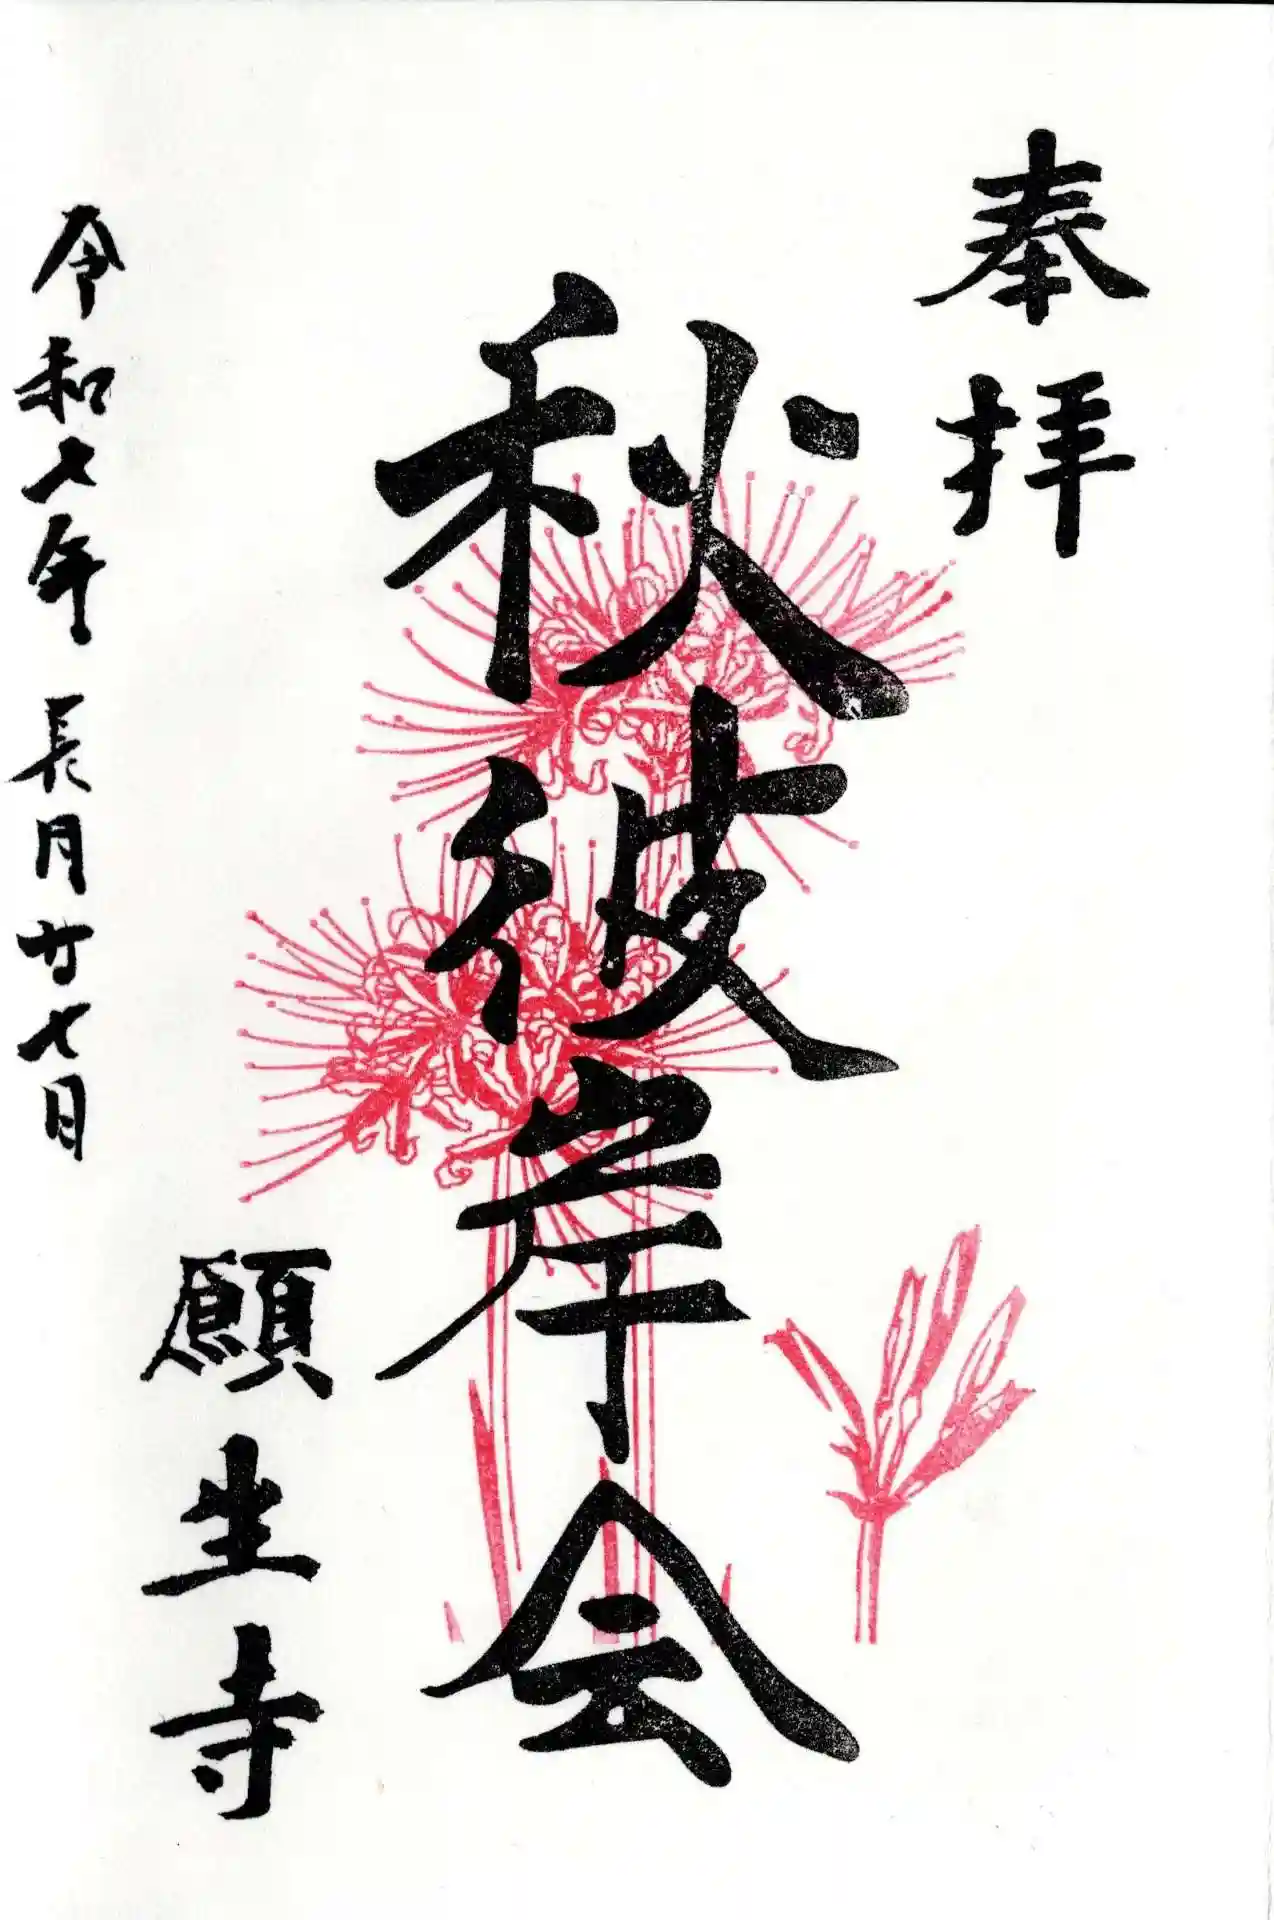 奉拝
秋彼岸会
令和七年長月廿七日
願生寺